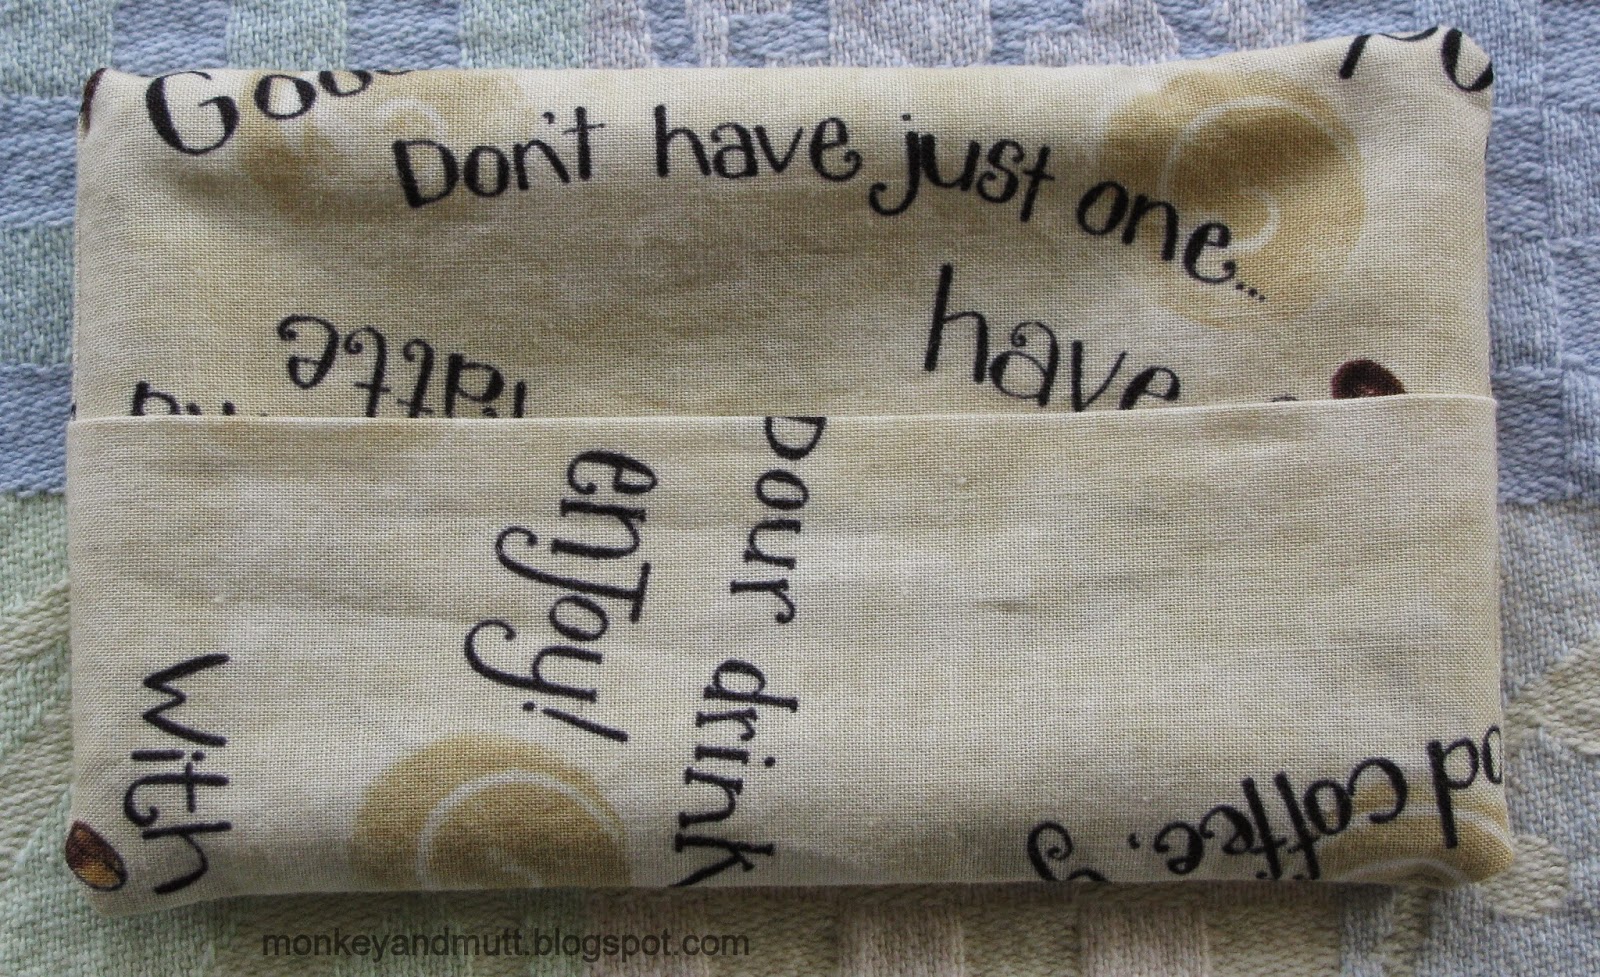 Don't have just one...
have
latte
enJoy!
Pour drink
with
coffee.
monkeyandmutt.blogspot.com